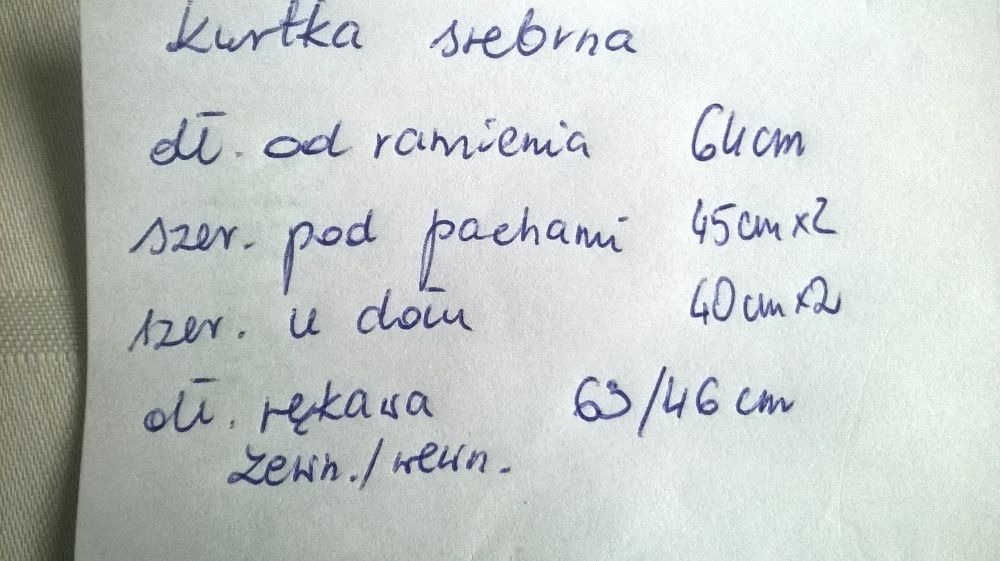 kurtka srebrna
dł. od ramienia 64cm
szer. pod pachami 45cm x2
szer. u dołu 40cm x2
dł. rękawa 63/46 cm
zewn./wewn.